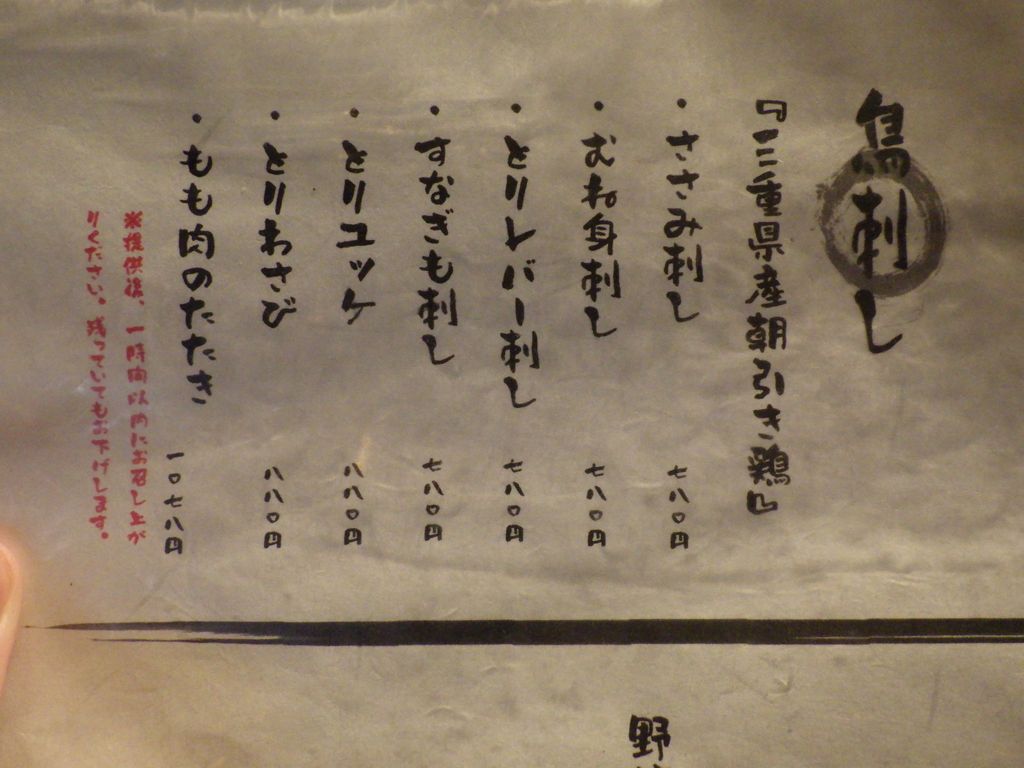 鳥刺し
『三重県産朝引き鶏』
・ささみ刺し 七八〇円
・むね身刺し 七八〇円
・とりレバー刺し 七八〇円
・すなぎも刺し 七八〇円
・とりユッケ 八八〇円
・とりわさび 八八〇円
・もも肉のたたき 一〇七八円
※提供後、一時間以内にお召し上が
りください。残っていてもお下げします。
野